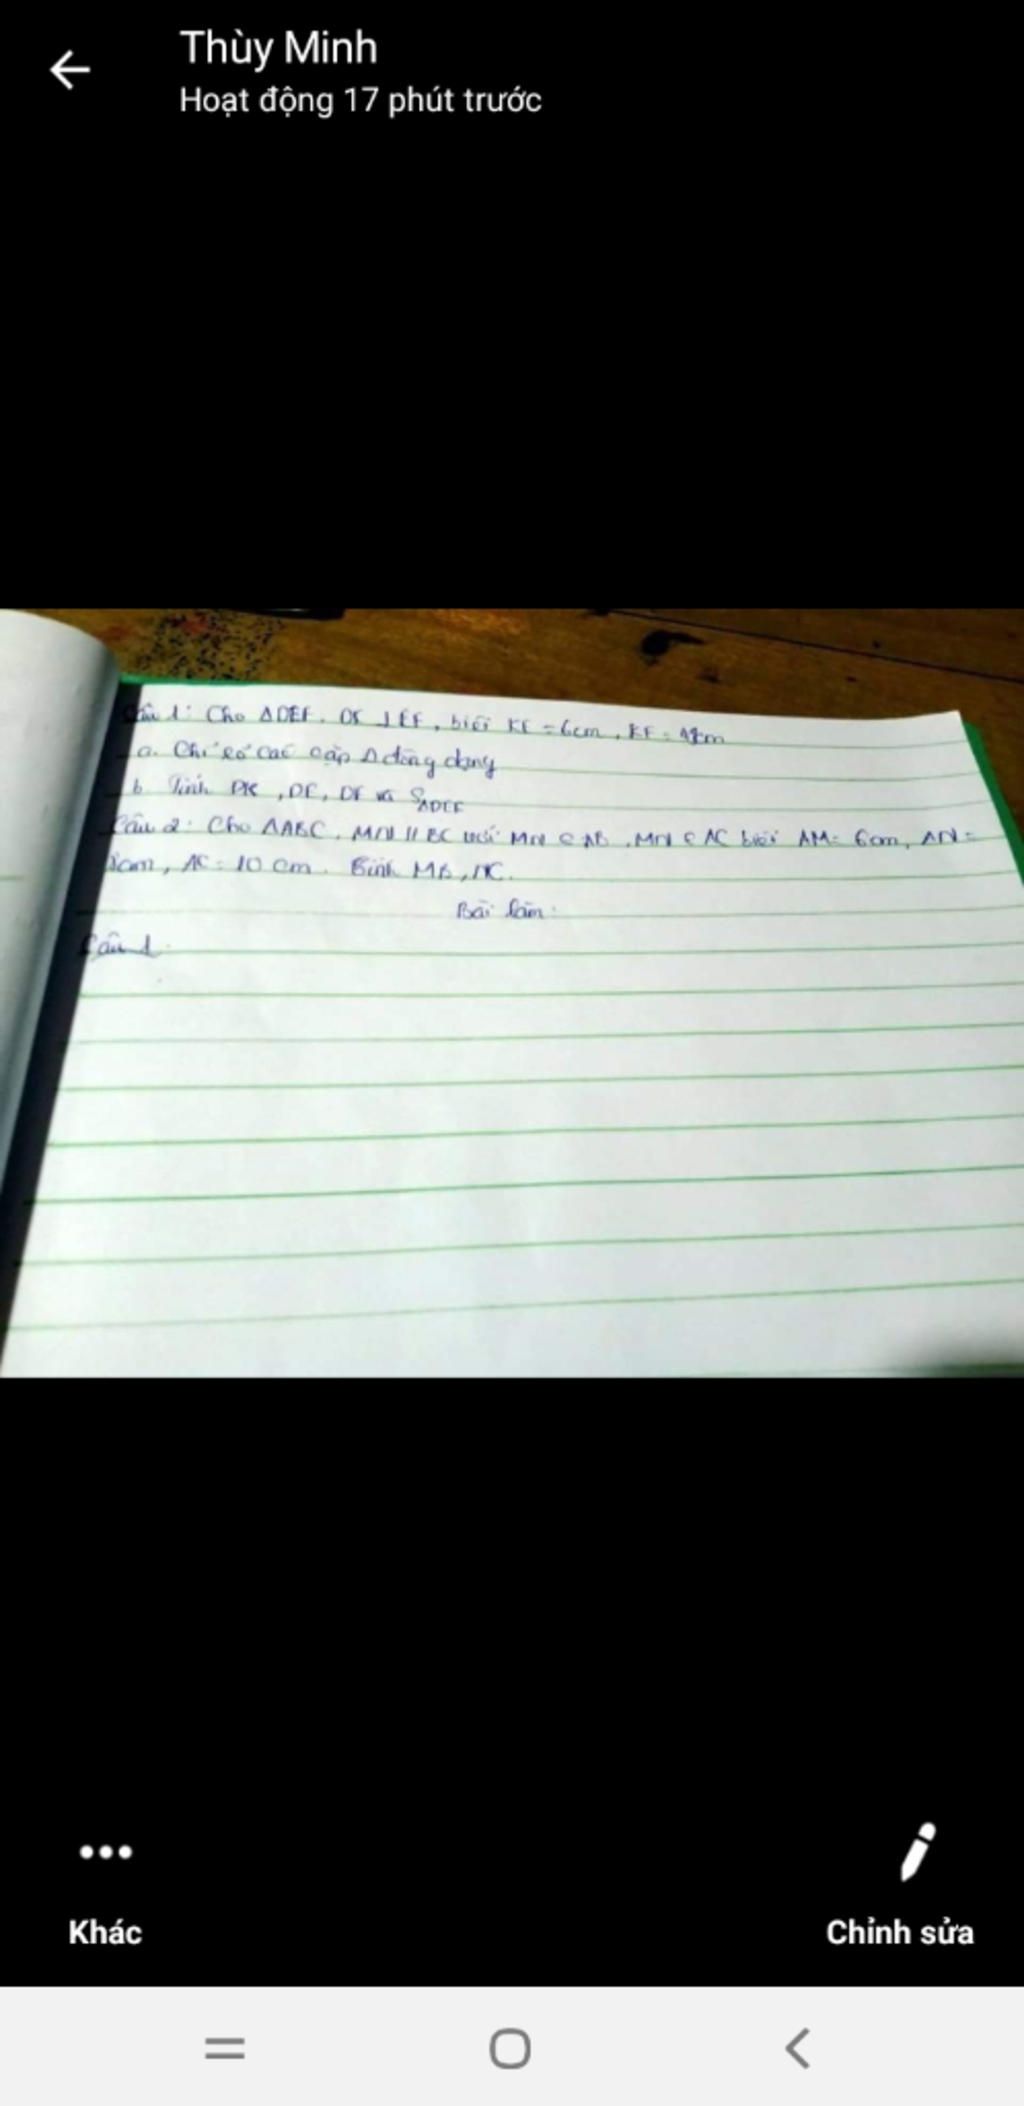 Thùy Minh
Hoạt động 17 phút trước
Câu 1: Cho ΔDEF. DK ⊥ EF, biết KE = 6cm, KF =
a. Chỉ rõ các cặp Δ đồng dạng
b. Tính DK, DE, DF và S ΔDEF
Câu 2: Cho ΔABC, MN // BC với MN ∈ AB, MN ∈ AC biết AM = 6cm, AN =
AC = 10 cm. MB, NC.
Bài làm:
Câu 1
Khác
Chỉnh sửa